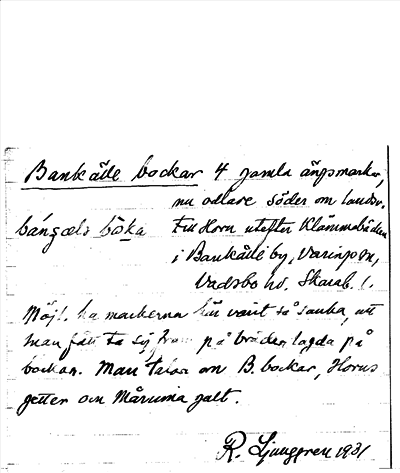 Bankälle bockar 4 gamla ängsmarker,
nu odlare söder om landsv.
bángæls bòka till Horn utefter Klämmabäcken
i Bankälle by, Varinge sn,
Vadsbo hd. Skarab. l.
Möjl. ha markerna här varit så sanka, att
man fått ta sig fram på bräder lagda på
bockar. Man talar om B. bockar, Horns
getter och Mårums galt.
R. Ljunggren 1931